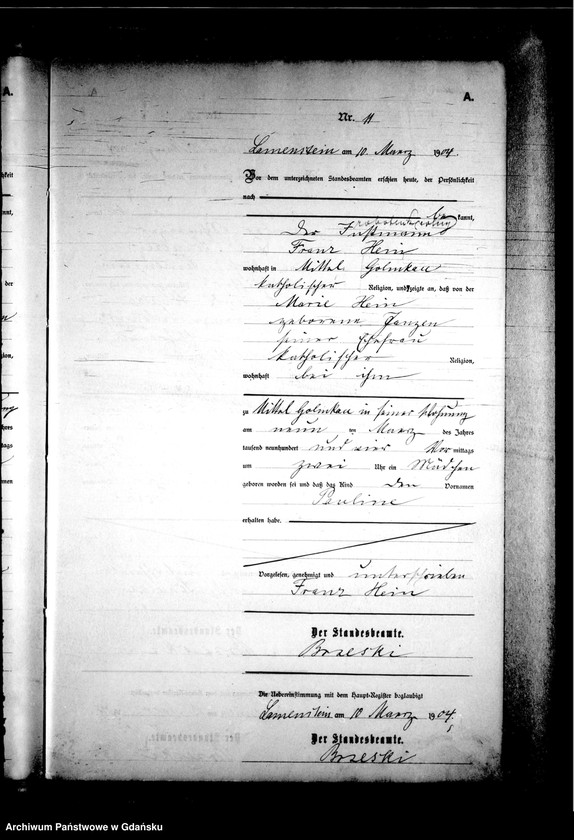 A.
A.
Nr. 11
Lamenstein am 10. Maerz 1904.
Vor dem unterzeichneten Standesbeamten erschien heute, der Persönlichkeit
nach
bekannt,
der Instmann
Franz Hein
wohnhaft in Mittel Golmkau
katholischer Religion, und zeigte an, daß von der
Marie Hein
geborene Janzen
seiner Ehefrau
katholischer Religion,
wohnhaft bei ihm
zu Mittel Golmkau in seiner Wohnung
am neun ten Maerz des Jahres
tausend neunhundert und vier Vor mittags
um zwei Uhr ein Mädchen
geboren worden sei und daß das Kind den Vornamen
Pauline
erhalten habe.
Vorgelesen, genehmigt und unterschrieben
Franz Hein
Der Standesbeamte.
Brzeski
Die Uebereinstimmung mit dem Haupt-Register beglaubigt
Lamenstein am 10 Maerz 1904.
Der Standesbeamte.
Brzeski
Archiwum Państwowe w Gdańsku